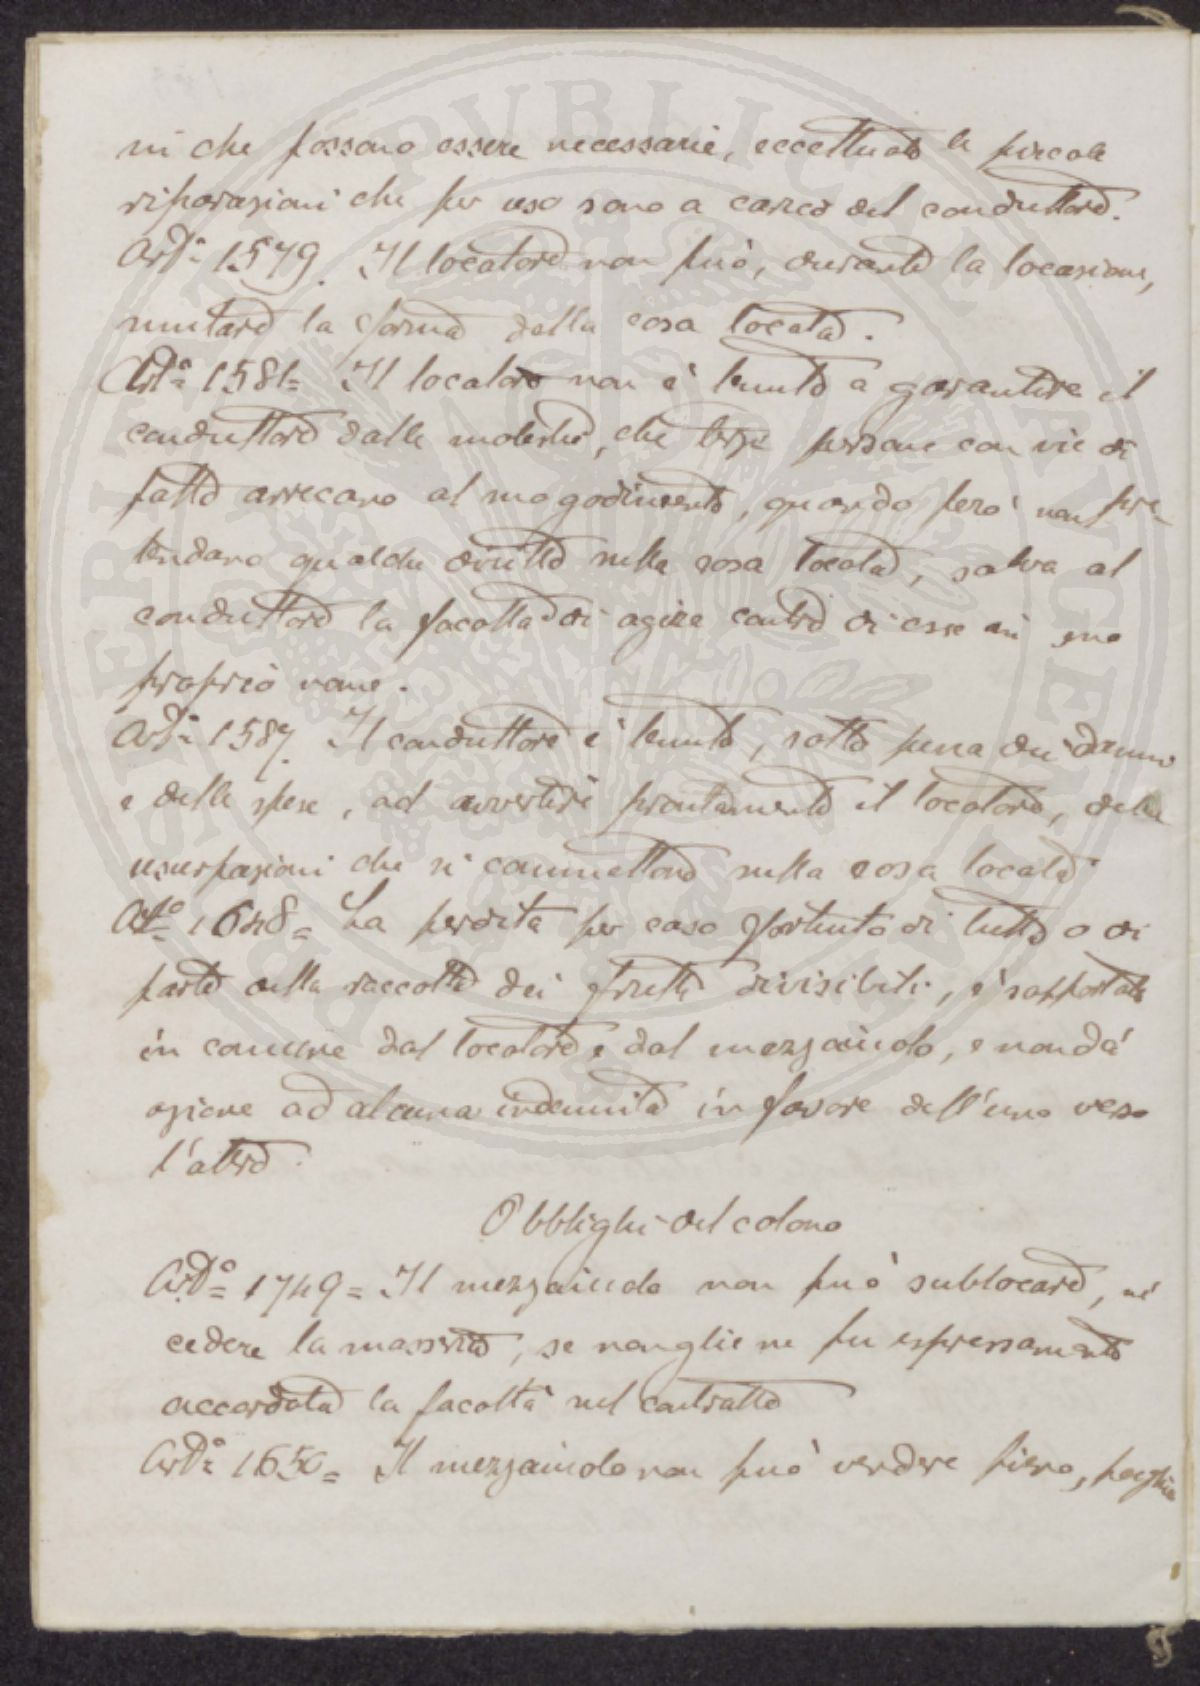 ni che possono essere necessarie, eccettuate le piccole
riparazioni che per uso sono a carico del conduttore.
Art.º 1579. Il locatore non può, durante la locazione,
mutare la forma della cosa locata.
Art.º 1581= Il locatore non è tenuto a garantire il
conduttore dalle molestie, che terze persone con vie di
fatto arrecano al suo godimento, quando però non pre-
tendano qualche diritto nella cosa locata, salva al
conduttore la facoltà di agire contro di esse in suo
proprio nome.
Art.º 1587. Il conduttore è tenuto, sotto pena dei danni
e delle spese, ad avvertire prontamente il locatore, delle
usurpazioni che si commettono nella cosa locata.
Art.º 1648= La perdita per caso fortuito di tutto o di
parte della raccolta dei frutti divisibili, è sopportata
in comune dal locatore e dal mezzaiuolo, e non dà
azione ad alcuna indennità in favore dell'uno verso
l'altro.
Obblighi del colono
Art.º 1749= Il mezzaiuolo non può sublocare, nè
cedere la masseria, se non gliene fu espressamente
accordata la facoltà nel contratto
Art.º 1650= Il mezzaiuolo non può vendere fieno, paglia
PVBLICAE